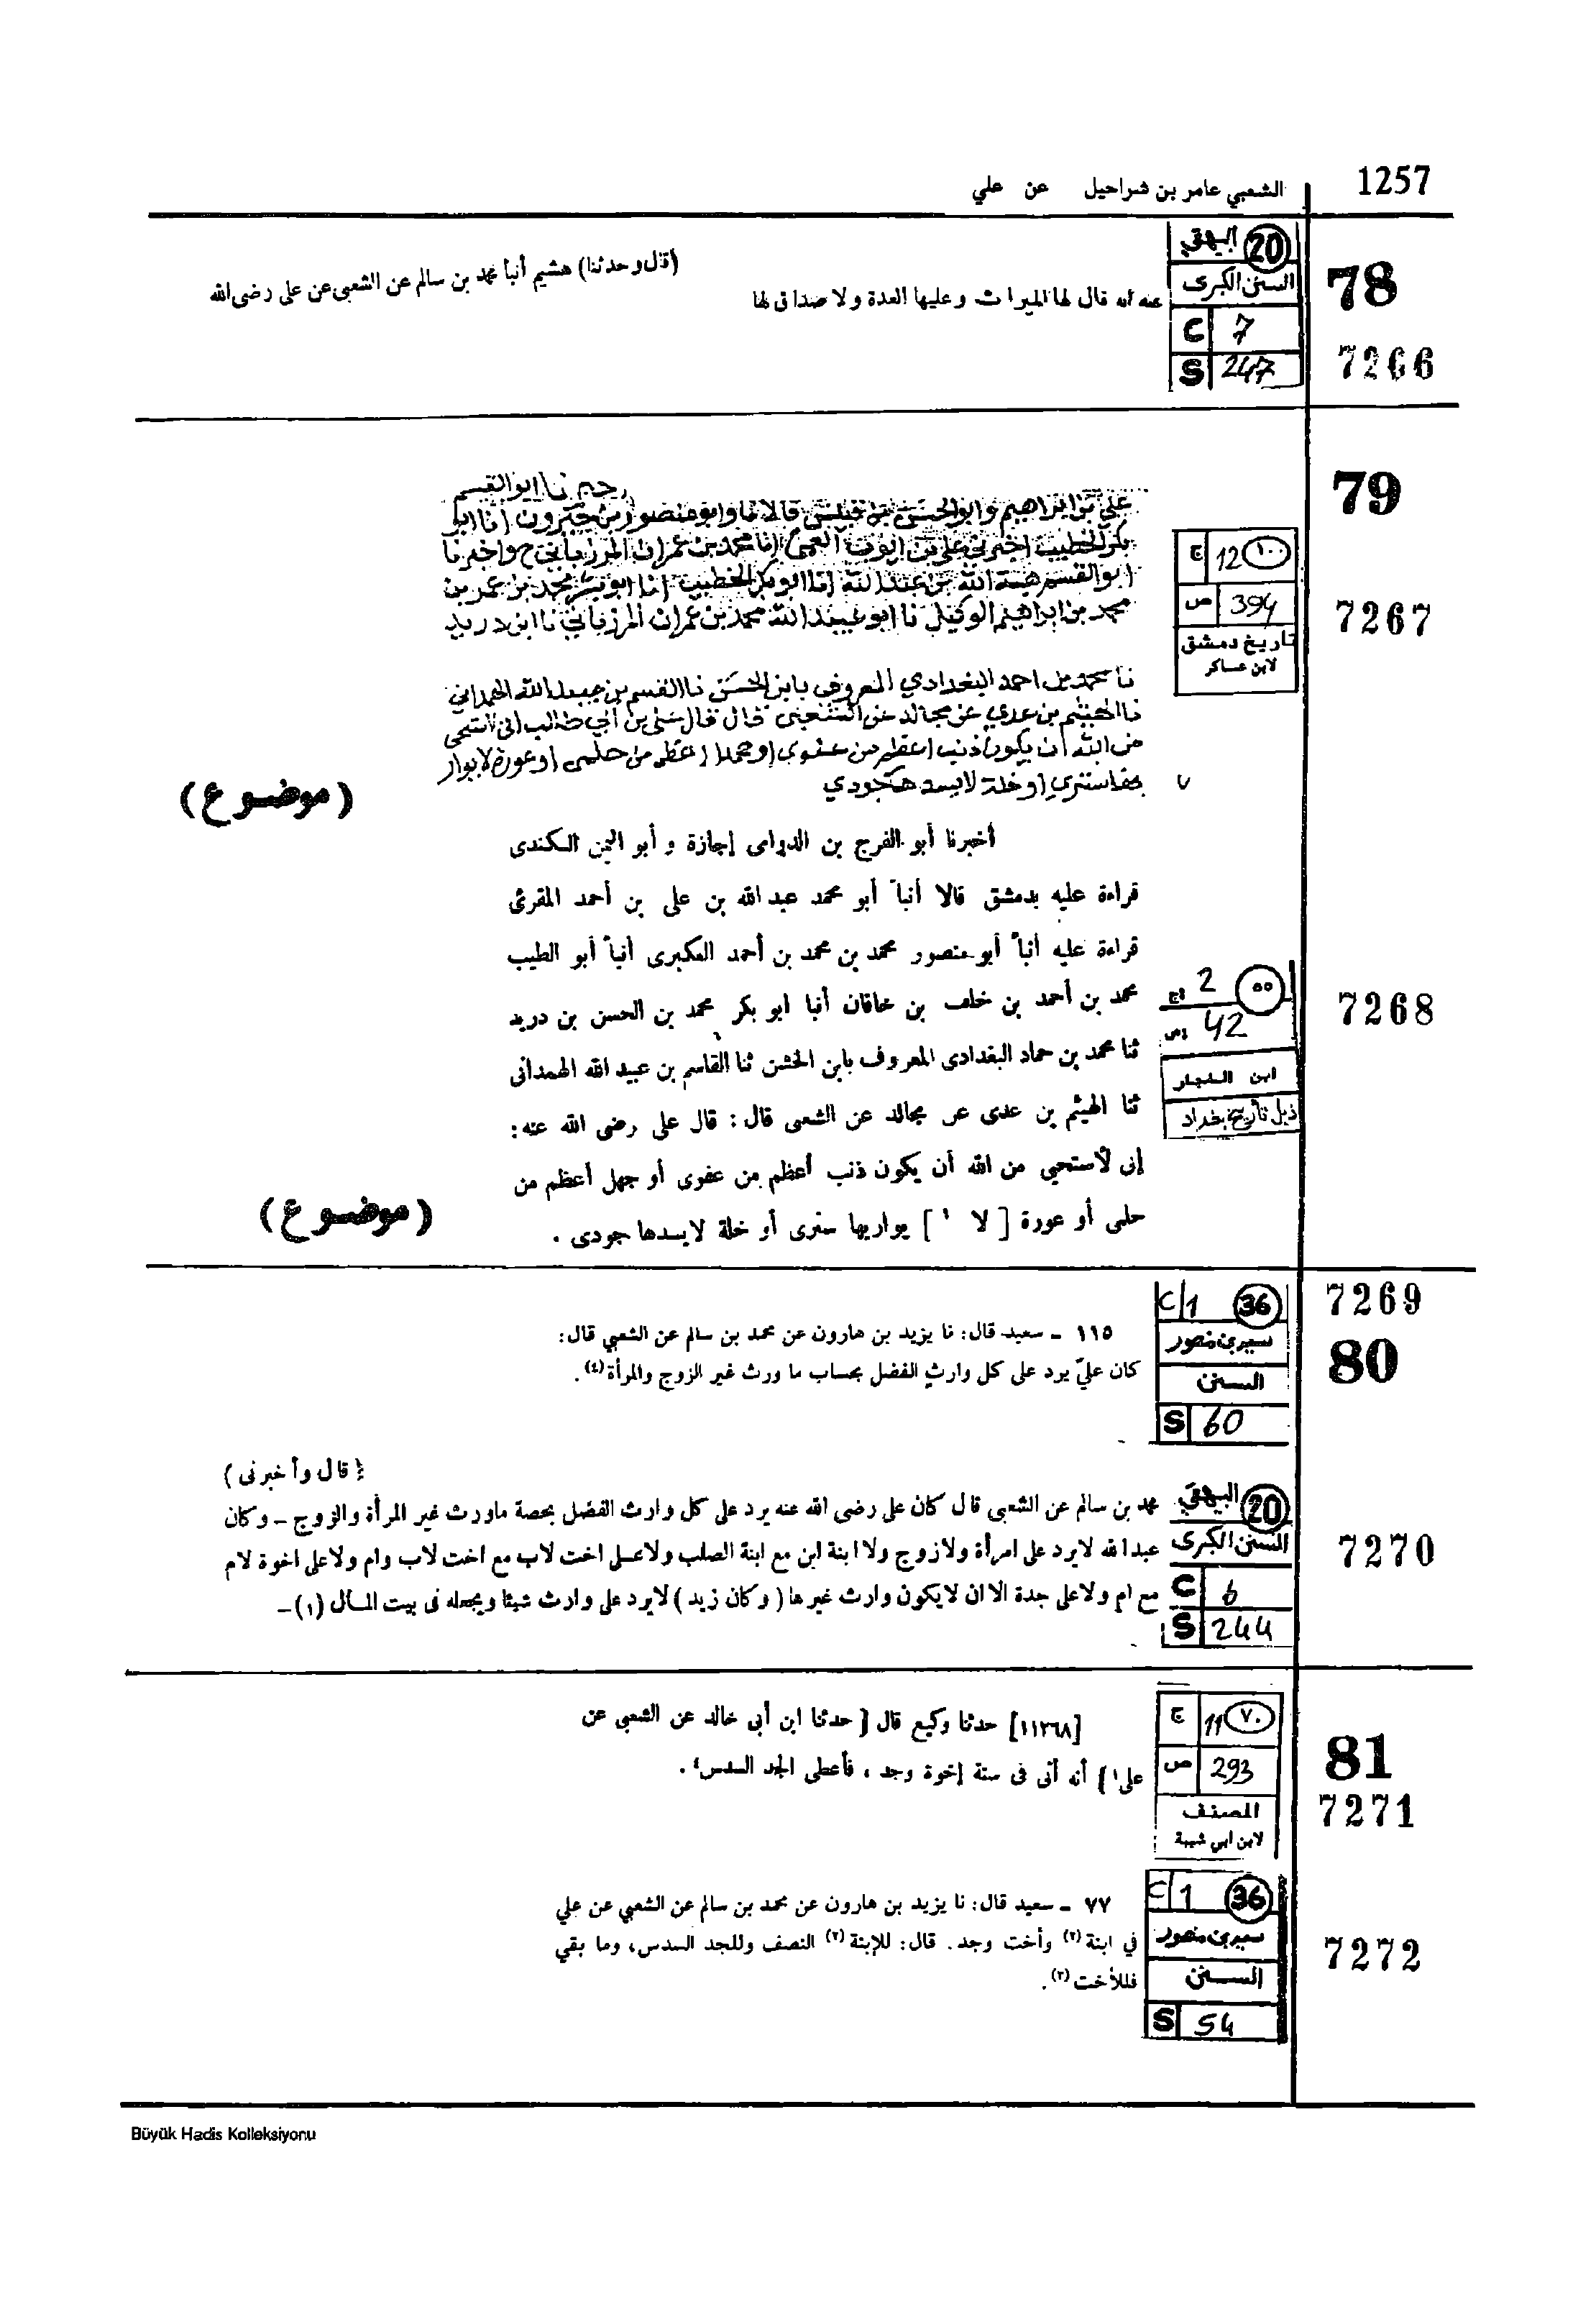 1257
الشعبي عامر بن شراحيل عن علي
78
7266
20 البيهقي
السنن الكبرى
C 7
S 247
(قال وحدثنا) هشيم أنبأ محمد بن سالم عن الشعبي عن على رضى الله
عنه أنه قال لها الميراث وعليها العدة ولا صداق لها
79
7267
ج 12 ١٠٠
ص 394
تاريخ دمشق
لابن عساكر
نا ابو القسم
علي بن ابراهيم وابو الحسن بن قبيس قالا نا وابو منصور بن خيرون انا ابو
بكر الخطيب اخبرني علي بن ايوب القمي انا محمد بن عمران المرزباني ح واخبرنا
ابو القسم هبة الله بن عبد الله انا ابو بكر الخطيب انا ابو بشر محمد بن عمر بن
محمد بن ابراهيم الوكيل نا ابو عبيد الله محمد بن عمران المرزباني نا ابن دريد
نا محمد بن احمد البغدادي المعروف بابن الخشن نا القسم بن عبيد الله الهمداني
نا الهيثم بن عدي عن مجالد عن الشعبي قال قال علي بن ابي طالب اني لاستحيي
من الله ان يكون ذنب اعظم من عفوي او جهل اعظم من حلمي او عورة لا يوار
يها ستري او خلة لا يسدها جودي
(موضوع)
7268
2 ٥٥
ص 42
ابن النجار
ذيل تأريخ بغداد
أخبرنا أبو الفرج بن الدواى إجازة و أبو اليمن الكندى
قراءة عليه بدمشق قالا أنبأ أبو محمد عبد الله بن على بن أحمد المقرئ
قراءة عليه أنبأ أبو منصور محمد بن محمد بن أحمد العكبرى أنبأ أبو الطيب
محمد بن أحمد بن خلف بن خاقان أنبا ابو بكر محمد بن الحسن بن دريد
ثنا محمد بن حماد البغدادى المعروف بابن الخشن ثنا القاسم بن عبيد الله الهمدانى
ثنا الهيثم بن عدى عن مجالد عن الشعبى قال: قال على رضى الله عنه:
إنى لأستحيى من الله أن يكون ذنب أعظم من عفوى أو جهل أعظم من
حلمى أو عورة [ لا ١ ] يواريها سترى أو خلة لا يسدها جودى .
(موضوع)
7269
80
C 1 36
سعيد بن منصور
السنن
S 60
١١٥ - سعيد قال: نا يزيد بن هارون عن محمد بن سالم عن الشعبي قال:
كان عليّ يرد على كل وارثٍ الفضل بحساب ما ورث غير الزوج والمرأة (٤) .
7270
20 البيهقي
السنن الكبرى
C 6
S 244
( قال وأخبرنى )
محمد بن سالم عن الشعبى قال كان على رضى الله عنه يرد على كل وارث الفضل بحصة ماورث غير المرأة والزوج - وكان
عبدالله لايرد على امرأة ولازوج ولا ابنة ابن مع ابنة الصلب ولاعلى اخت لاب مع اخت لاب وام ولاعلى اخوة لام
مع ام ولاعلى جدة الا ان لايكون وارث غيرها ( وكان زيد ) لايرد على وارث شيئا ويجعله فى بيت المال (١) -
81
7271
ج 11 ٧٠
ص 293
المصنف
لابن ابي شيبة
[١١٢٦٨] حدثنا وكيع قال [ حدثنا ابن أبى خالد عن الشعبى عن
على١ ] أنه أتى فى ستة إخوة وجد ، فأعطى الجد السدس٤ .
7272
C 1 36
سعيد بن منصور
السنن
S 54
٧٧ - سعيد قال: نا يزيد بن هارون عن محمد بن سالم عن الشعبي عن علي
في ابنة (٢) وأخت وجد. قال: للإبنة (٢) النصف وللجد السدس، وما بقي
فللأخت (٣) .
Büyük Hadis Kolleksiyonu